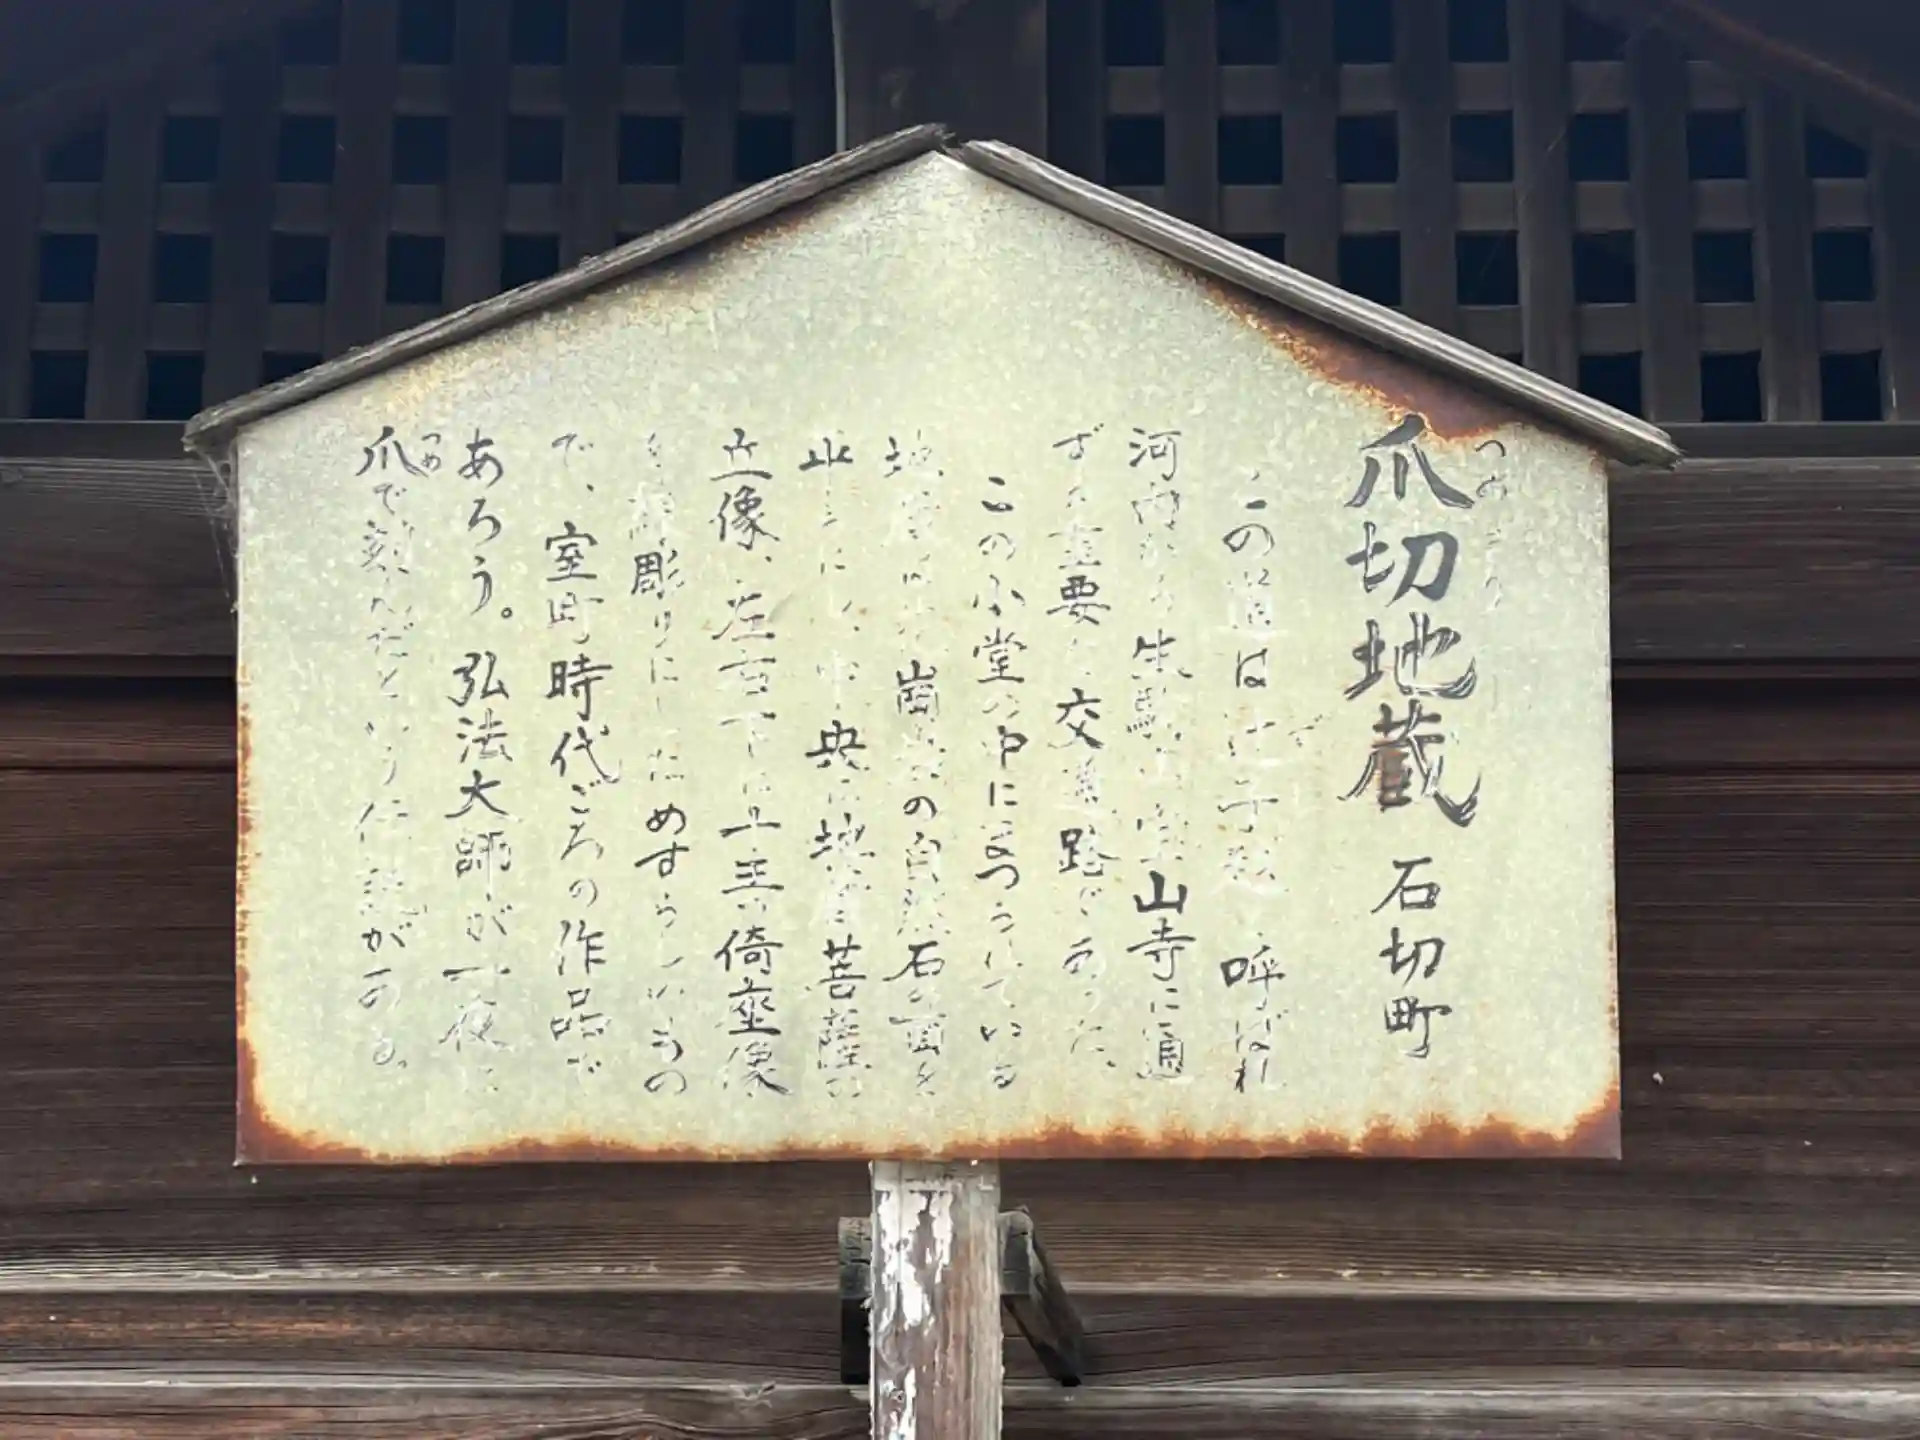 爪切地蔵 石切町
つめきり
この道は辻子越と呼ばれ
河内から生駒山宝山寺に通
ずる重要な交通路であった。
この小堂の中にまつられている
地蔵は の自然石の面を
中央に地蔵菩薩の
立像、左右下に十王の倚座像
彫りにしためずらしいもの
で、室町時代ごろの作品で
あろう。弘法大師が一夜に
爪で刻んだという伝説がある。
つめ